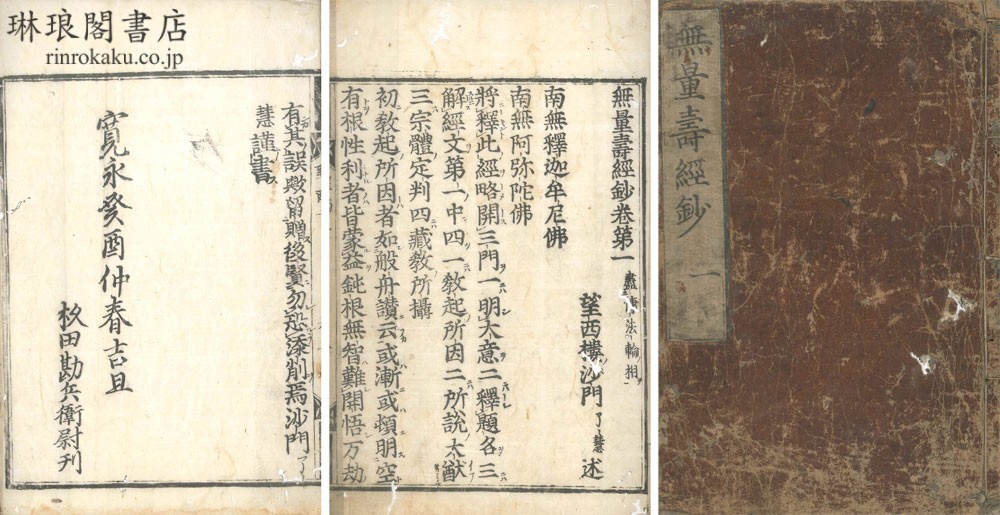 琳琅閣書店
rinrokaku.co.jp
無量壽經鈔
一
無量壽經鈔卷第一 盡轉法輪相
望西樓沙門 了慧 述
南無釋迦牟尼佛
南無阿弥陀佛
將釋此經略開三門一明大意二釋題名三
解經文第一中四一教起所因二所說大猷
三宗體定判四藏教所攝
初教起所因者如般舟讚云或漸或頓明空
有根性利者皆蒙益鈍根無智難開悟万劫
有其誤歟留贈後賢勿恐添削焉沙門了
慧謹書
寛永癸酉仲春吉旦
杦田勘兵衛尉刊